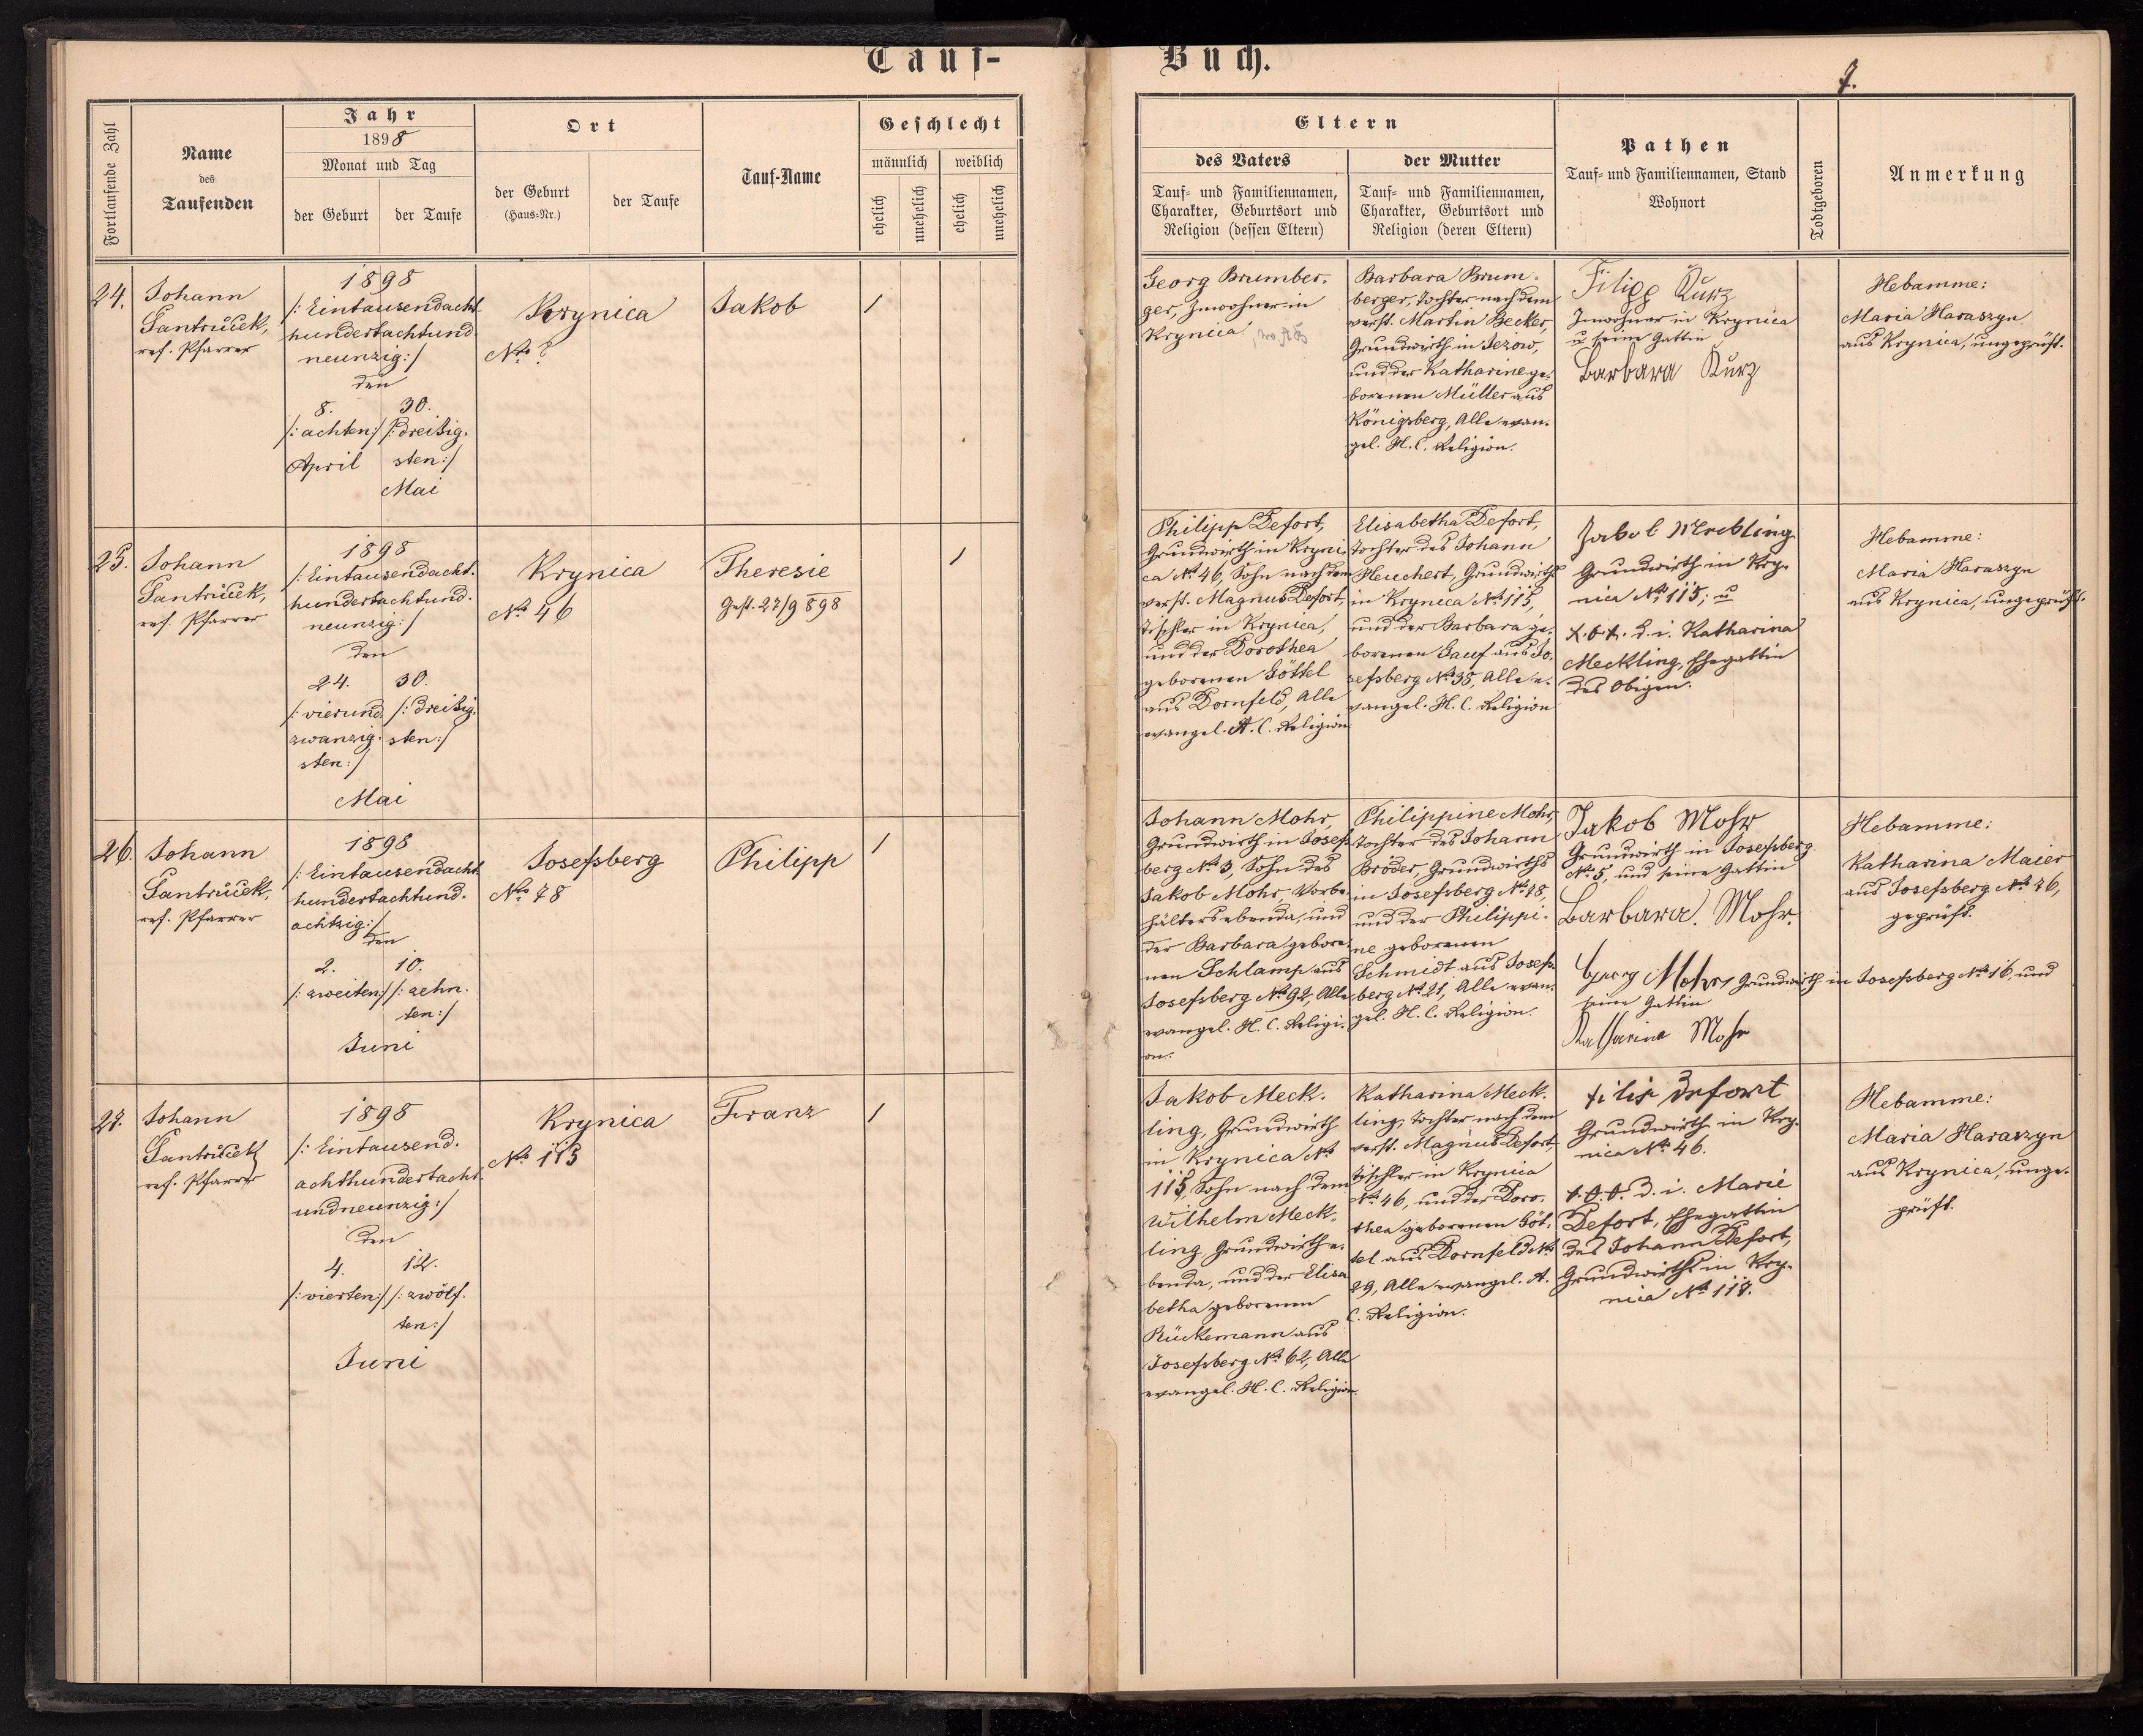 Tauf-
Buch.
7.
Fortlaufende Zahl
Name
des
Taufenden
Jahr
1898
Monat und Tag
der Geburt
der Taufe
Ort
der Geburt
(Haus-Nr.)
der Taufe
Tauf-Name
Geschlecht
männlich
weiblich
ehelich
unehelich
ehelich
unehelich
Eltern
des Vaters
Tauf- und Familiennamen,
Charakter, Geburtsort und
Religion (dessen Eltern)
der Mutter
Tauf- und Familiennamen,
Charakter, Geburtsort und
Religion (deren Eltern)
Pathen
Tauf- und Familiennamen, Stand
Wohnort
Todtgeboren
Anmerkung
24.
Johann
Santrůček,
ref. Pfarrer
1898
/:Eintausendacht
hundertachtund
neunzig:/
den
8.
/:achten:/
April
30.
/:dreißig.
sten:/
Mai
Krynica
No ?
Jakob
1
Georg Brumber.
ger, Inwohner in
Krynica
Barbara Brum.
berger, Tochter nach dem
verst. Martin Becker,
Grundwirth in Jezow,
und der Katharine ge.
borenen Müller aus
Königsberg, Alle evan.
gel. H. C. Religion.
Filipp Kurz
Inwohner in Krynica
u seine Gattin
Barbara Kurz
Hebamme:
Maria Haraszyn
aus Krynica, ungeprüft.
25.
Johann
Santrůček,
ref. Pfarrer
1898
/:Eintausendacht.
hundertachtund.
neunzig:/
den
24.
/:vierund
zwanzig.
sten:/
30.
/:dreißig.
sten:/
Mai
Krynica
No 46
Theresie
Gest. 27/9 898
1
Philipp Defort,
Grundwirth in Kryni.
ca No 46, Sohn nach dem
verst. Magnus Defort,
Tischler in Krynica,
und der Dorothea
geborenen Göttel
aus Dornfeld, Alle
evangel. A. C. Religion
Elisabetha Defort,
Tochter des Johann
Heuchert, Grundwirth
in Krynica No 115,
und der Barbara ge.
borenen Gauf aus Jo.
sefsberg No 38, Alle e.
vangel. H. C. Religion
Jakob Meckling
Grundwirth in Kry.
nica No 115; u
x.o.x. d. i. Katharina
Meckling, Ehegattin
des Obigen.
Hebamme:
Maria Haraszyn
aus Krynica, ungeprüft.
26.
Johann
Santrůček,
ref. Pfarrer
1898
/:Eintausendacht
hundertachtund.
achtzig:/
den
2.
/:zweiten:/
10.
/:zehn.
ten:/
Juni
Josefsberg
No 78
Philipp
1
Johann Mohr,
Grundwirth in Josefs
berg No 3, Sohn des
Jakob Mohr, Vorbe.
hälters ebenda, und
der Barbara gebore.
nen Schlamp aus
Josefsberg No 92, Alle
evangel. H. C. Religi.
on.
Philippine Mohr,
Tochter des Johann
Bröder, Grundwirths
in Josefsberg No 78,
und der Philippi.
ne geborenen
Schmidt aus Josefs.
berg No 21, Alle evan.
gel. H. C. Religion.
Jakob Mohr
Grundwirth in Josefsberg
No 5, und seine Gattin
Barbara Mohr.
Georg Mohr, Grundwirth in Josefsberg No 16, und
seine Gattin
Katharina Mohr
Hebamme:
Katharina Maier
aus Josefsberg No 76,
geprüft.
27.
Johann
Santrůček
ref. Pfarrer
1898
/:Eintausend.
achthundertacht.
undneunzig:/
den
4.
/:vierten:/
12.
/:zwölf.
ten:/
Juni
Krynica
No 115
Franz
1
Jakob Meck.
ling, Grundwirth
in Krynica No
115, Sohn nach dem
Wilhelm Meck.
ling, Grundwirth e.
benda, und der Elisa
betha geborenen
Rückemann aus
Josefsberg No 62, Alle
evangel. H. C. Religion.
Katharina Meck.
ling, Tochter nach dem
verst. Magnus Defort,
Tischler in Krynica
No 46, und der Doro.
thea geborenen Göt.
tel aus Dornfeld No
29, Alle evangel. A.
C. Religion.
Filip Defort
Grundwirth in Kry.
nica No 46.
x.o.x. d. i. Marie
Defort, Ehegattin
des Johann Defort,
Grundwirths in Kry.
nica No 118.
Hebamme:
Maria Haraszyn
aus Krynica, unge.
prüft.